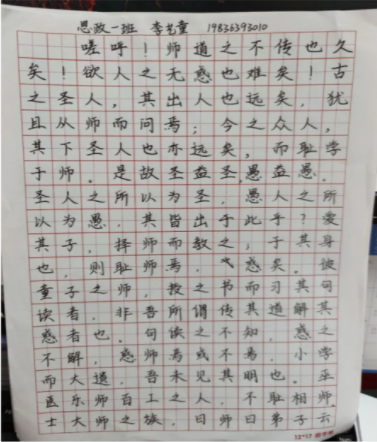 思政一班 李艺童 19836393010
嗟呼！师道之不传也久
矣！欲人之无惑也难矣！古
之圣人，其出人也远矣，犹
且从师而问焉；今之众人，
其下圣人也亦远矣，而耻学
于师。是故圣益圣愚益愚。
圣人之所以为圣，愚人之所
以为愚，其皆出于此乎？爱
其子，择师而教之；于其身
也，则耻师焉，惑矣。彼
童子之师，教之书而习其句
读者，非吾所谓传其道解其
惑者也。句读之不知，惑之
不解，或师焉或不焉，小学
而大遗，吾未见其明也。巫
医乐师百工之人，不耻相师
士大师之族，曰师曰弟子云